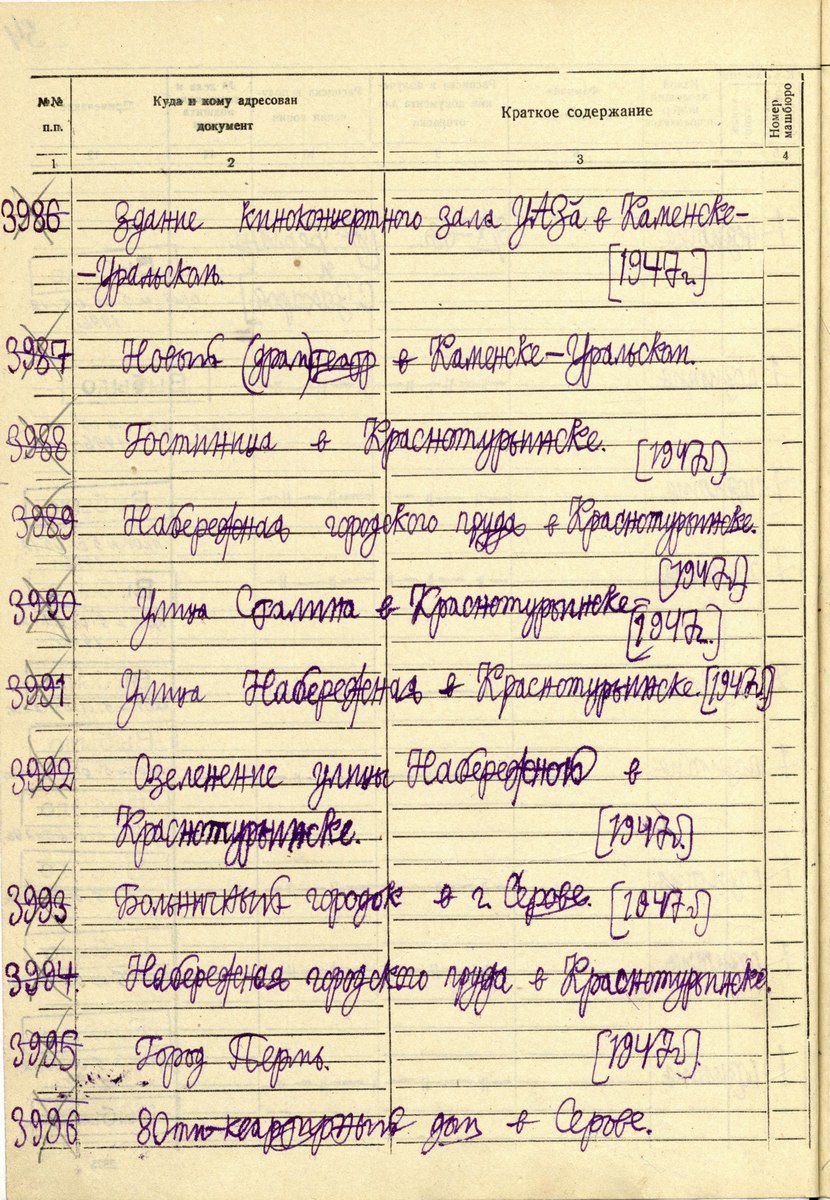 №№ п.п.
Куда и кому адресован документ
Краткое содержание
Номер машбюро
1 2 3 4
3986 Здание киноконцертного зала УАЗа в Каменске-
-Уральском. [1947г.]
3987 Новый (драм)театр в Каменске-Уральском.
3988 Гостиница в Краснотурьинске. [1947г.]
3989 Набережная городского пруда в Краснотурьинске.
[1947г.]
3990 Улица Сталина в Краснотурьинске.
[1947г.]
3991 Улица Набережная в Краснотурьинске. [1947г.]
3992 Озеленение улицы Набережной в
Краснотурьинске. [1947г.]
3993 Больничный городок в г. Серове. [1947г.]
3994. Набережная городского пруда в Краснотурьинске.
3995 Город Пермь. [1947г.]
3996 80ти-квартирный дом в Серове.